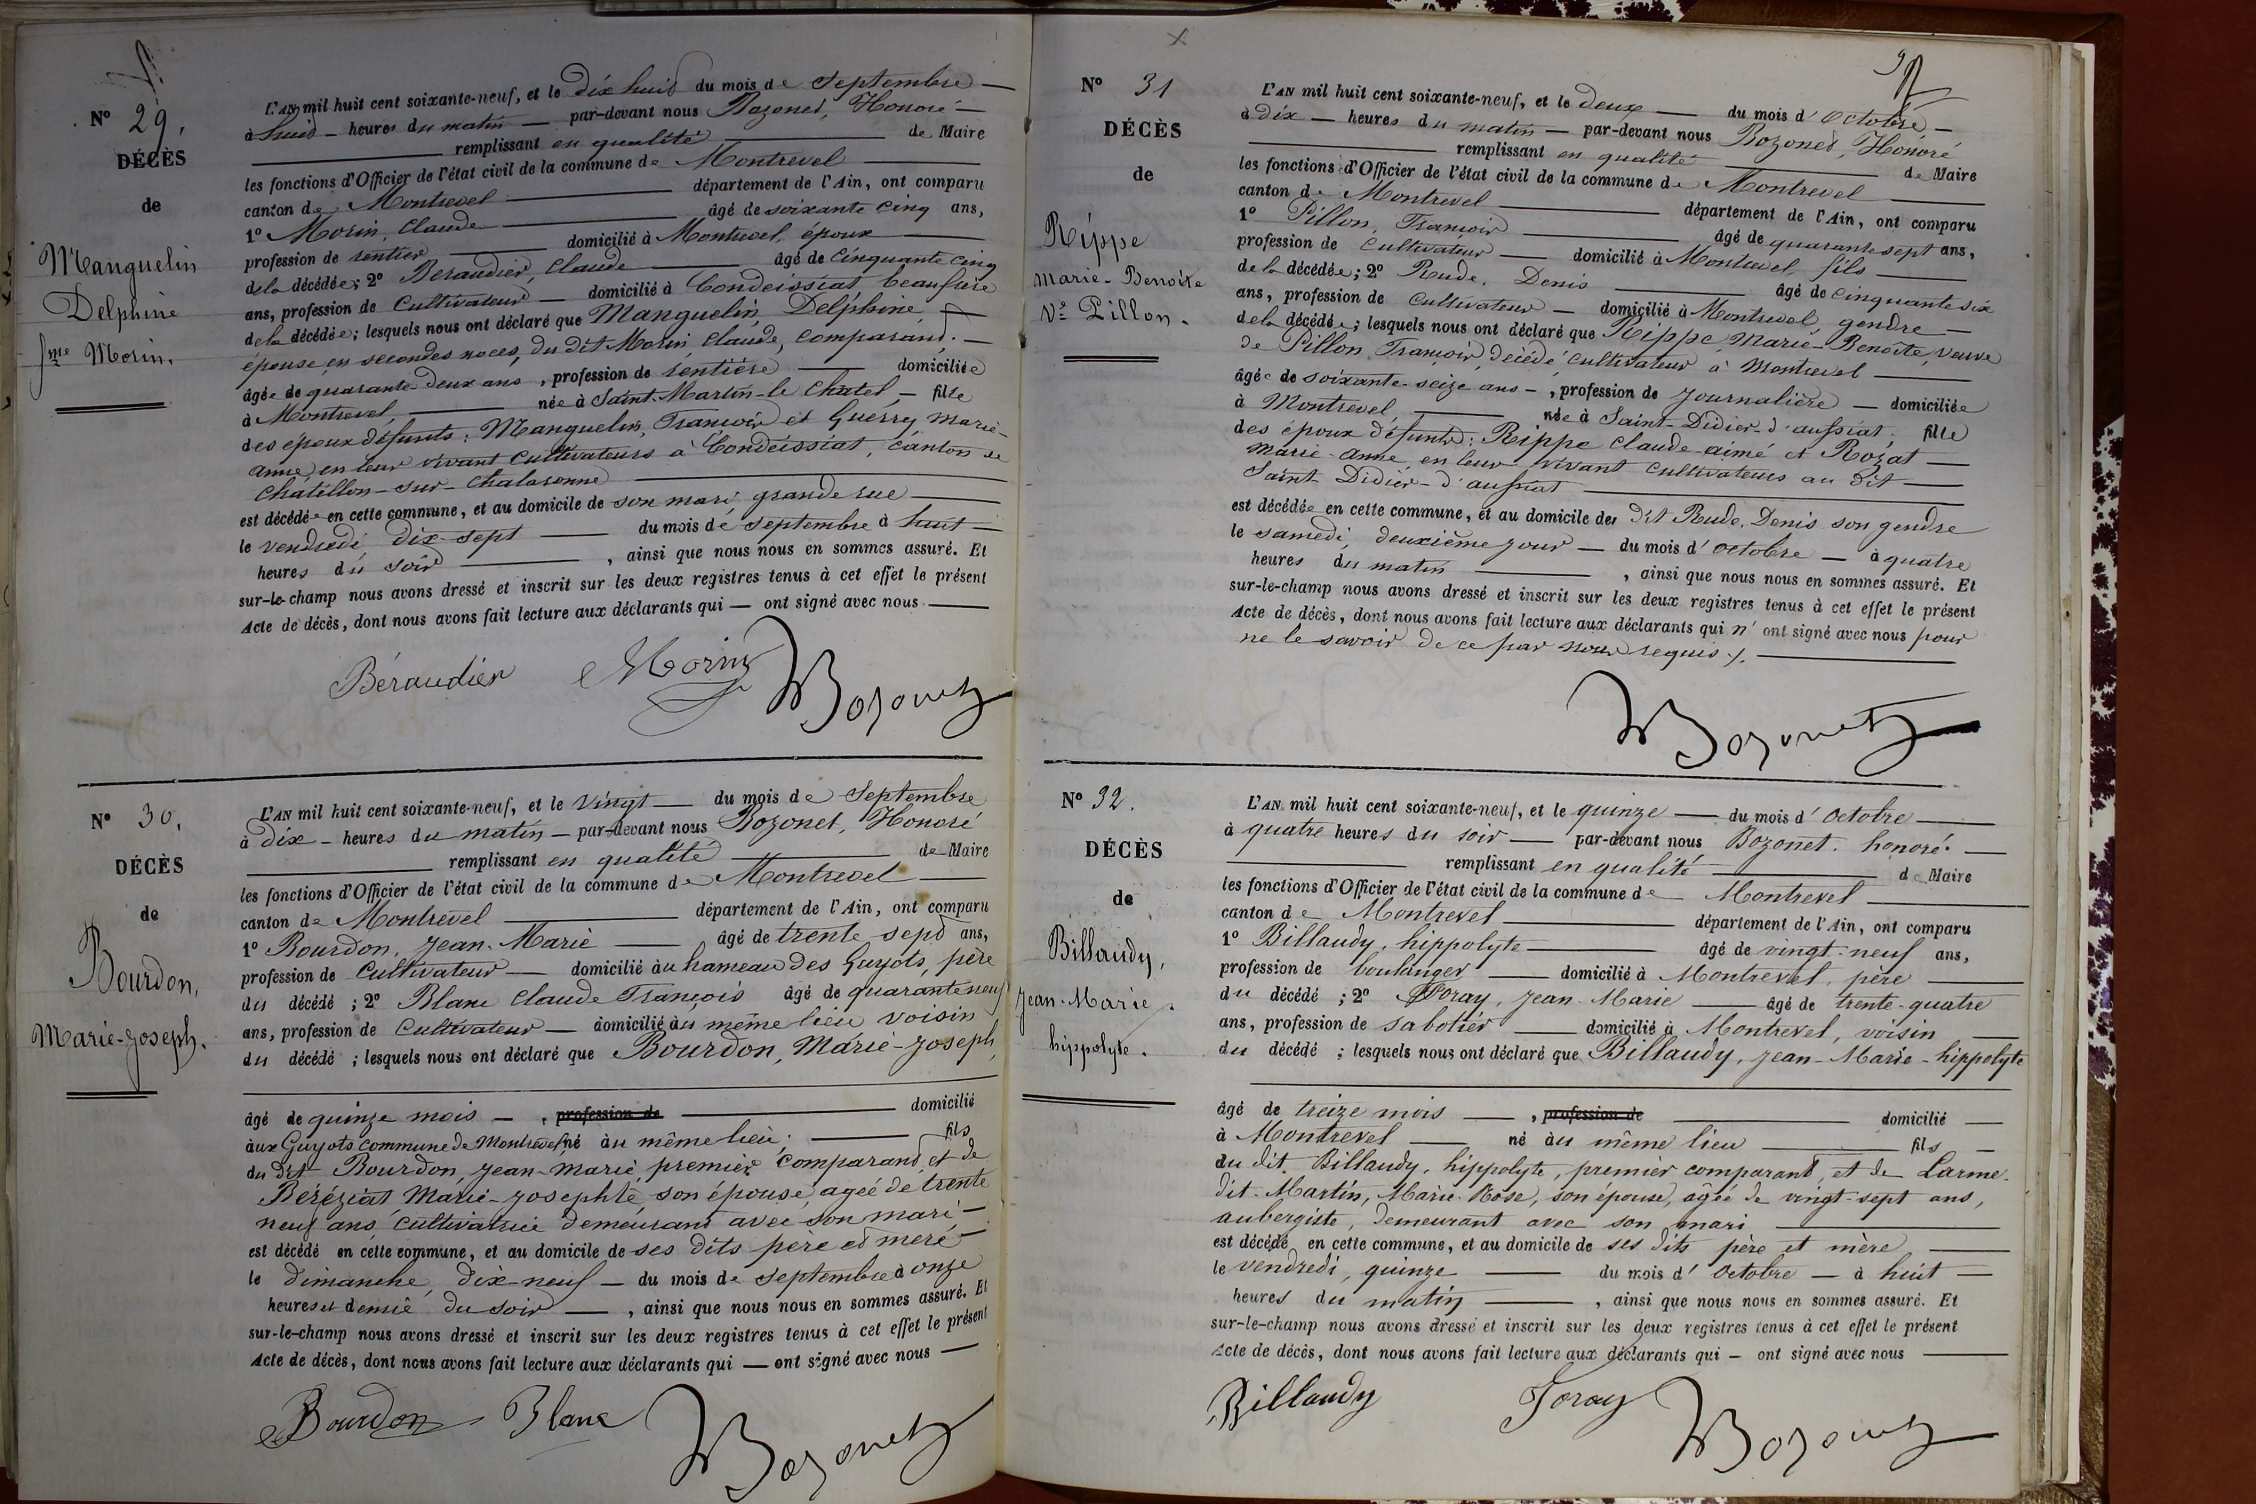 Nº 29.
DÉCÈS
de
Manguelin
Delphine
fme Morin.
L'AN mil huit cent soixante-neuf, et le dix huit du mois de Septembre
à huit heures du matin par-devant nous Bozonet, Honoré
remplissant en qualité de Maire
les fonctions d'Officier de l'état civil de la commune de Montrevel
canton de Montrevel département de l'Ain, ont comparu
1º Morin, Claude âgé de soixante cinq ans,
profession de rentier domicilié à Montrevel, époux
de la décédée; 2º Beraudier, Claude âgé de cinquante cinq
ans, profession de Cultivateur domicilié à Condeissiat, beaufrère
de la décédée; lesquels nous ont déclaré que Manguelin, Delphine,
épouse en secondes noces, du dit Morin, Claude, comparant.
âgée de quarante deux ans, profession de rentière domiciliée
à Montrevel, née à Saint-Martin-le Châtel, fille
des époux défunts: Manguelin, François et Guerrey Marie-
anne, en leur vivant cultivateurs à Condeissiat, canton de
Châtillon-sur-Chalaronne
est décédée en cette commune, et au domicile de son mari, grande rue
le vendredi, dix-sept du mois de Septembre à huit
heures du soir, ainsi que nous nous en sommes assuré. Et
sur-le-champ nous avons dressé et inscrit sur les deux registres tenus à cet effet le présent
Acte de décès, dont nous avons fait lecture aux déclarants qui — ont signé avec nous
Béraudier Morin Bozonet
Nº 30.
DÉCÈS
de
Bourdon,
Marie-Joseph.
L'AN mil huit cent soixante-neuf, et le Vingt du mois de Septembre
à dix heures du matin par-devant nous Bozonet, Honoré
remplissant en qualité de Maire
les fonctions d'Officier de l'état civil de la commune de Montrevel
canton de Montrevel département de l'Ain, ont comparu
1º Bourdon, Jean-Marie âgé de trente sept ans,
profession de Cultivateur domicilié au hameau des Guyots, père
du décédé; 2º Blanc Claude François âgé de quarante neuf
ans, profession de Cultivateur domicilié au même lieu voisin
du décédé; lesquels nous ont déclaré que Bourdon, Marie-Joseph,
âgé de quinze mois, profession de domicilié
aux Guyots commune de Montrevel, né au même lieu; fils
du dit Bourdon, Jean-Marie, premier comparant, et de
Béréziat Marie-Josephte, son épouse, agée de trente
neuf ans, cultivatrice demeurant avec son mari
est décédé en cette commune, et au domicile de ses dits père et mère
le dimanche, dix-neuf du mois de Septembre à onze
heures et demie du soir, ainsi que nous nous en sommes assuré. Et
sur-le-champ nous avons dressé et inscrit sur les deux registres tenus à cet effet le présent
Acte de décès, dont nous avons fait lecture aux déclarants qui — ont signé avec nous
Bourdon Blanc Bozonet
Nº 31
DÉCÈS
de
Rippe
Marie-Benoite
Ve Pillon.
L'AN mil huit cent soixante-neuf, et le deux du mois d'Octobre
à dix heures du matin par-devant nous Bozonet, Honoré
remplissant en qualité de Maire
les fonctions d'Officier de l'état civil de la commune de Montrevel
canton de Montrevel département de l'Ain, ont comparu
1º Pillon, François âgé de quarante sept ans,
profession de Cultivateur domicilié à Montrevel, fils
de la décédée; 2º Rude, Denis âgé de cinquante six
ans, profession de Cultivateur domicilié à Montrevel, gendre
de la décédée; lesquels nous ont déclaré que Rippe, Marie-Benoîte, veuve
de Pillon, François, décédé, cultivateur à Montrevel
âgée de soixante-seize ans, profession de Journalière domiciliée
à Montrevel née à Saint-Didier-d'aussiat, fille
des époux défunts: Rippe Claude-aimé et Rozat
Marie-anne en leur vivant cultivateurs au dit
Saint-Didier-d'aussiat
est décédée en cette commune, et au domicile des dit Rude, Denis son gendre
le samedi, deuxième jour du mois d'octobre à quatre
heures du matin, ainsi que nous nous en sommes assuré. Et
sur-le-champ nous avons dressé et inscrit sur les deux registres tenus à cet effet le présent
Acte de décès, dont nous avons fait lecture aux déclarants qui n'ont signé avec nous pour
ne le savoir de ce par nous requis.
Bozonet
Nº 32.
DÉCÈS
de
Billaudy,
Jean-Marie
hippolyte.
L'AN mil huit cent soixante-neuf, et le quinze du mois d'Octobre
à quatre heures du soir par-devant nous Bozonet, honoré.
remplissant en qualité de Maire
les fonctions d'Officier de l'état civil de la commune de Montrevel
canton de Montrevel département de l'Ain, ont comparu
1º Billaudy, hippolyte âgé de vingt-neuf ans,
profession de boulanger domicilié à Montrevel, père
du décédé; 2º Foray, Jean-Marie âgé de trente-quatre
ans, profession de sabotier domicilié à Montrevel, voisin
du décédé; lesquels nous ont déclaré que Billaudy, Jean-Marie-hippolyte
âgé de treize mois, profession de domicilié
à Montrevel né au même lieu fils
du dit Billaudy, hippolyte, premier comparant, et de Larme-
dit-Martin, Marie-Rose, son épouse, âgée de vingt-sept ans,
aubergiste, demeurant avec son mari
est décédé en cette commune, et au domicile de ses dits père et mère
le vendredi, quinze du mois d'Octobre à huit
heures du matin, ainsi que nous nous en sommes assuré. Et
sur-le-champ nous avons dressé et inscrit sur les deux registres tenus à cet effet le présent
Acte de décès, dont nous avons fait lecture aux déclarants qui — ont signé avec nous
Billaudy Foray Bozonet